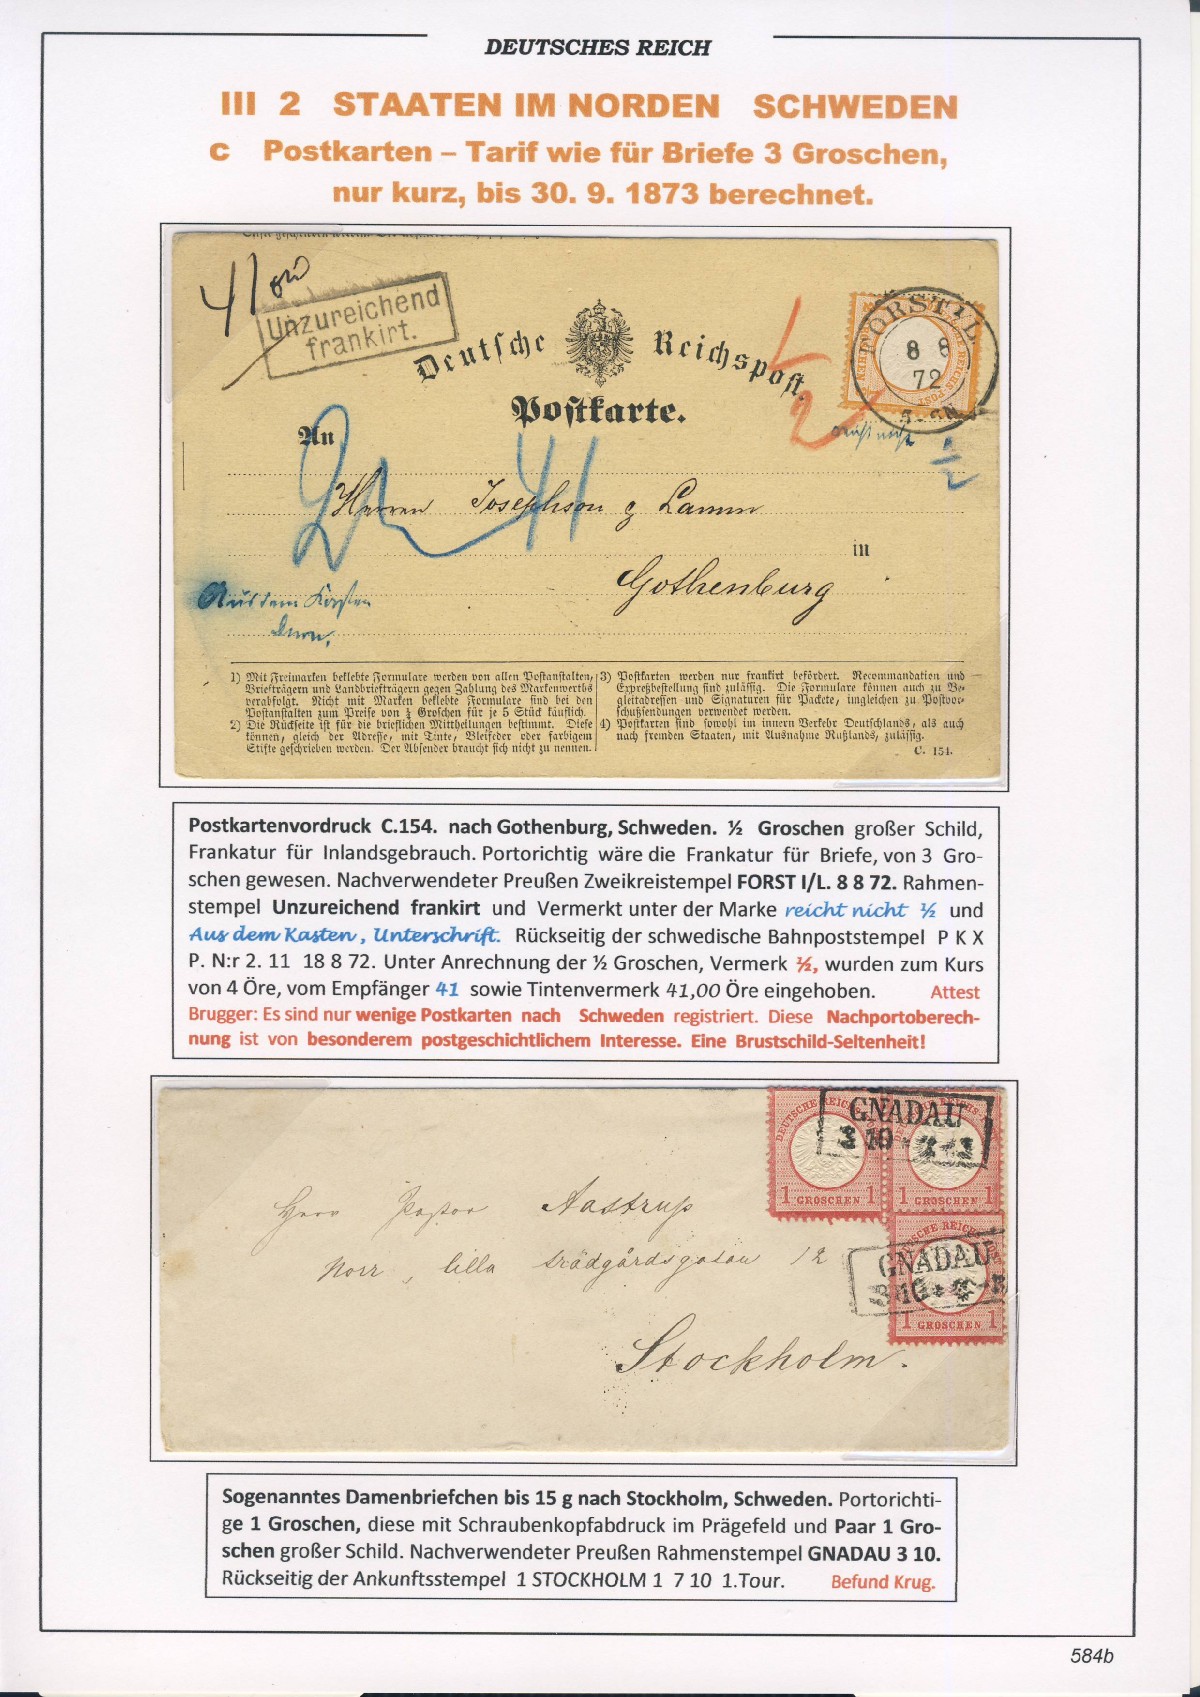 DEUTSCHES REICH
III 2 STAATEN IM NORDEN SCHWEDEN
c Postkarten – Tarif wie für Briefe 3 Groschen,
nur kurz, bis 30. 9. 1873 berechnet.
41
Unzureichend
frankirt.
Deutsche Reichspost.
Postkarte.
FORST I/L
8 8
72
1/2
An
41
Herren Josephson & Lamm
in
Gothenburg
Aus dem Kasten
1) Mit Freimarken beklebte Formulare werden von allen Postanstalten,
Briefträgern und Landbriefträgern gegen Zahlung des Markenwerths
verabfolgt. Nicht mit Marken beklebte Formulare sind bei den
Postanstalten zum Preise von ¼ Groschen für je 5 Stück käuflich.
2) Die Rückseite ist für die brieflichen Mittheilungen bestimmt. Diese
können, gleich der Adresse, mit Tinte, Bleifeder oder farbigem
Stifte geschrieben werden. Der Absender braucht sich nicht zu nennen.
3) Postkarten werden nur frankirt befördert. Recommandation und
Expreßbestellung sind zulässig. Die Formulare können auch zu Be-
gleitadressen und Signaturen für Packete, ingleichen zu Postvor-
schußsendungen verwendet werden.
4) Postkarten sind sowohl im innern Verkehr Deutschlands, als auch
nach fremden Staaten, mit Ausnahme Rußlands, zulässig.
C. 154.
Postkartenvordruck C.154. nach Gothenburg, Schweden. ½ Groschen großer Schild,
Frankatur für Inlandsgebrauch. Portorichtig wäre die Frankatur für Briefe, von 3 Gro-
schen gewesen. Nachverwendeter Preußen Zweikreistempel FORST I/L. 8 8 72. Rahmen-
stempel Unzureichend frankirt und Vermerkt unter der Marke reicht nicht ½ und
Aus dem Kasten, Unterschrift. Rückseitig der schwedische Bahnpoststempel P K X
P. N:r 2. 11 18 8 72. Unter Anrechnung der ½ Groschen, Vermerk ½, wurden zum Kurs
von 4 Öre, vom Empfänger 41 sowie Tintenvermerk 41,00 Öre eingehoben. Attest
Brugger: Es sind nur wenige Postkarten nach Schweden registriert. Diese Nachportoberech-
nung ist von besonderem postgeschichtlichem Interesse. Eine Brustschild-Seltenheit!
GNADAU
3 10
1 GROSCHEN 1
1 GROSCHEN 1
GNADAU
3 10
1 GROSCHEN 1
Herr Pastor Aastrup
Norr, lilla trädgårdsgatan 12
Stockholm.
Sogenanntes Damenbriefchen bis 15 g nach Stockholm, Schweden. Portorichti-
ge 1 Groschen, diese mit Schraubenkopfabdruck im Prägefeld und Paar 1 Gro-
schen großer Schild. Nachverwendeter Preußen Rahmenstempel GNADAU 3 10.
Rückseitig der Ankunftsstempel 1 STOCKHOLM 1 7 10 1.Tour. Befund Krug.
584b